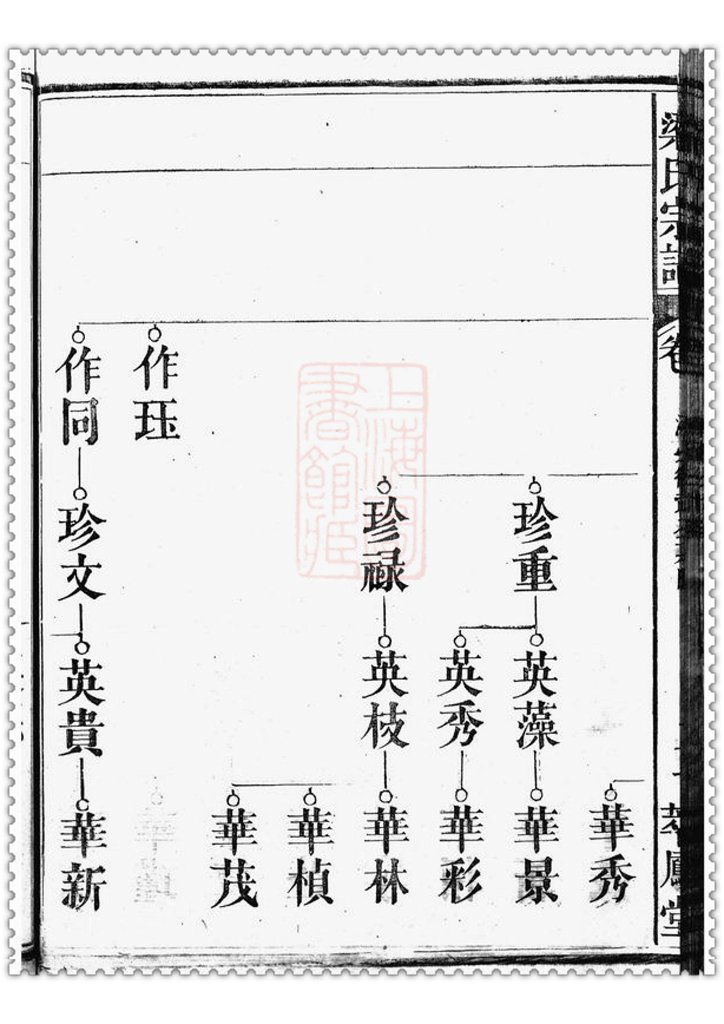 梁氏宗譜
卷
萃鳳堂
華秀
珍重
英藻
華景
英秀
華彩
珍祿
英枝
華林
華楨
華茂
作珏
作同
珍文
英貴
華新
上海圖
書館藏